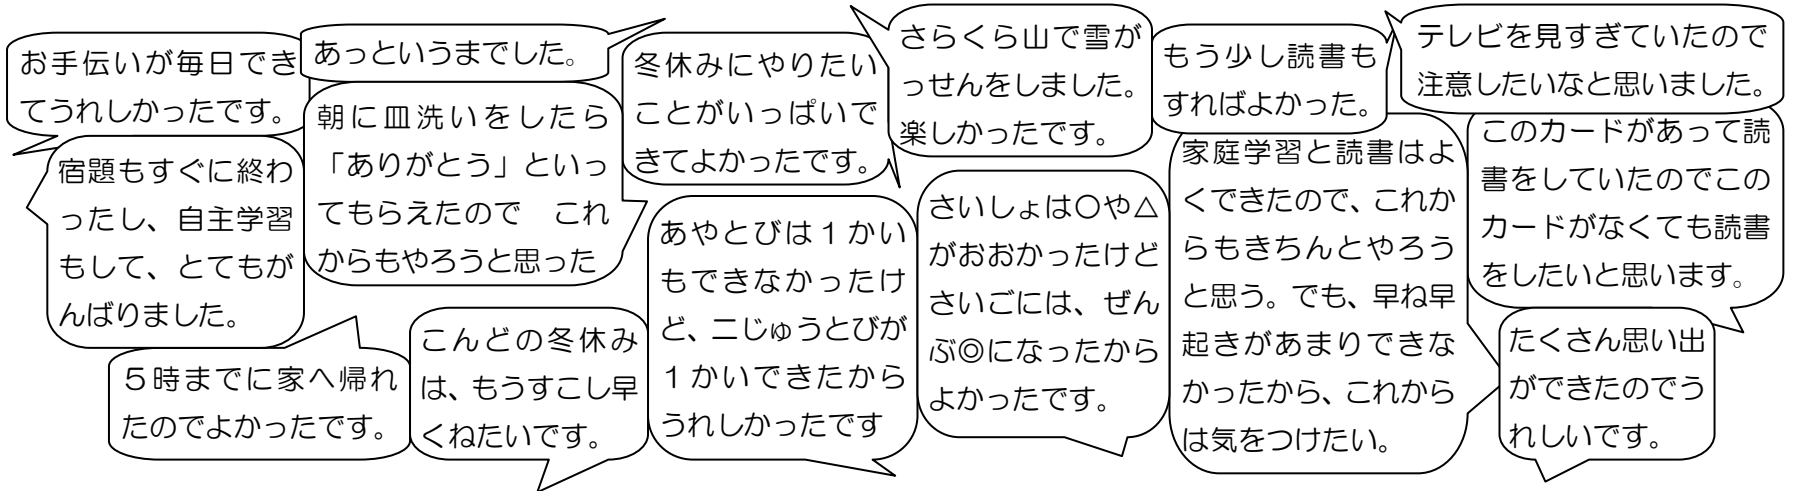 お手伝いが毎日でき
てうれしかったです。
あっというまでした。
冬休みにやりたい
ことがいっぱいで
きてよかったです。
さらくら山で雪が
っせんをしました。
楽しかったです。
もう少し読書も
すればよかった。
テレビを見すぎていたので
注意したいなと思いました。
宿題もすぐに終わ
ったし、自主学習
もして、とてもが
んばりました。
朝に皿洗いをしたら
「ありがとう」といっ
てもらえたので　これ
からもやろうと思った
あやとびは１かい
もできなかったけ
ど、二じゅうとびが
１かいできたから
うれしかったです
さいしょは〇や△
がおおかったけど
さいごには、ぜん
ぶ◎になったから
よかったです。
家庭学習と読書はよ
くできたので、これか
らもきちんとやろう
と思う。でも、早ね早
起きがあまりできな
かったから、これから
は気をつけたい。
このカードがあって読
書をしていたのでこの
カードがなくても読書
をしたいと思います。
５時までに家へ帰れ
たのでよかったです。
こんどの冬休み
は、もうすこし早
くねたいです。
たくさん思い出
ができたのでう
れしいです。